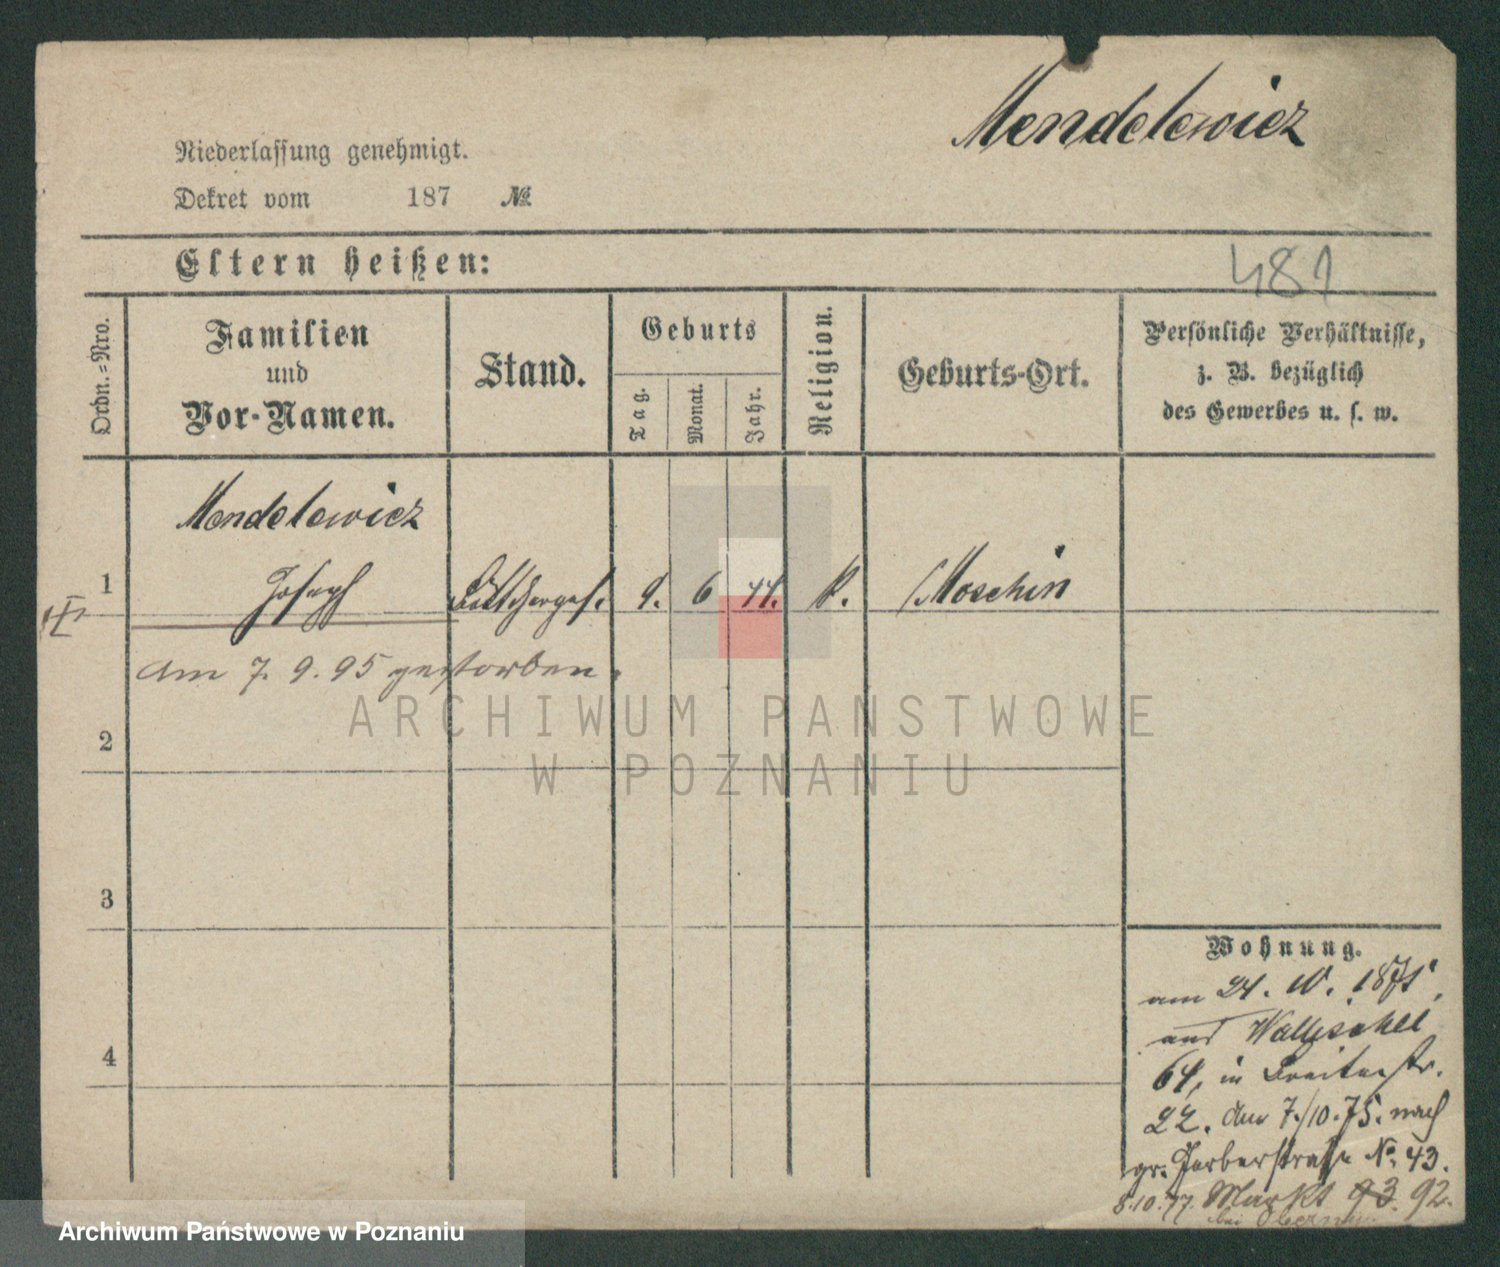 Mendelewicz
Niederlassung genehmigt.
Dekret vom 187 №
Eltern heißen:
481
Ordn.=Nro.
Familien
und
Vor-Namen.
Stand.
Geburts
Tag.
Monat.
Jahr.
Religion.
Geburts-Ort.
Persönliche Verhältnisse,
z. B. bezüglich
des Gewerbes u. s. w.
Mendelewicz
1 Joseph Böttcherges. 9. 6 44. k. Moschin
am 7. 9. 95 gestorben.
2
ARCHIWUM PAŃSTWOWE
W POZNANIU
3
4
Wohnung.
am 24. 10. 1871,
aus Wallischei
64, in Breitestr.
22. Am 7./10. 75. nach
gr. Gerberstraße No. 43.
8.10.77. Markt 93. 92.
bei
Archiwum Państwowe w Poznaniu